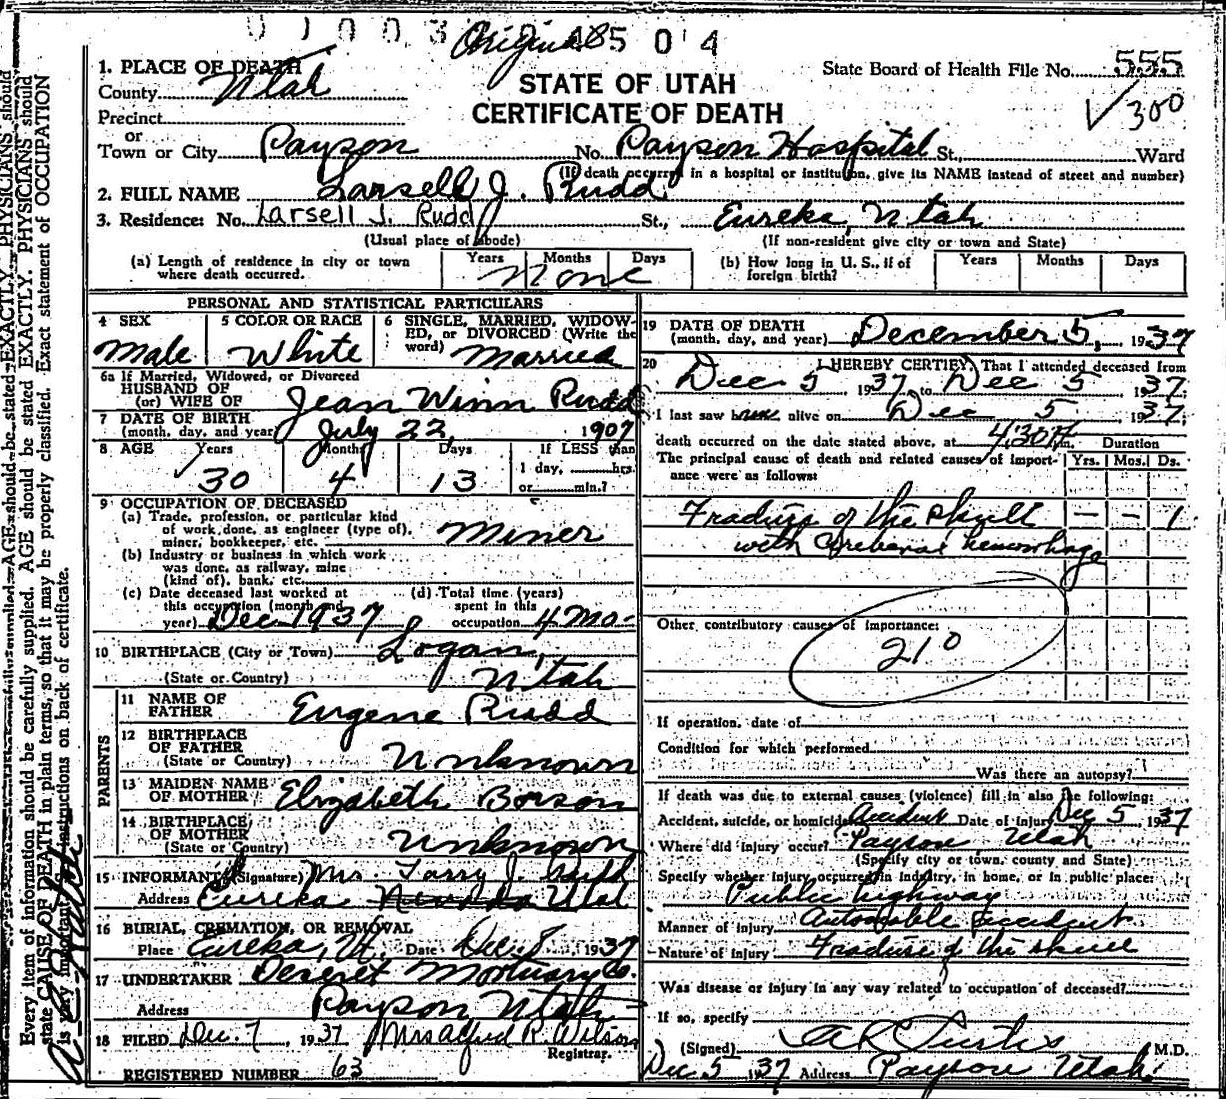 U 1 0 0 3 Original 8 5 0 4
1. PLACE OF DEATH
County Utah
Precinct
or
Town or City Payson No. Payson Hospital St., Ward
(If death occurred in a hospital or institution, give its NAME instead of street and number)
STATE OF UTAH
CERTIFICATE OF DEATH
State Board of Health File No. 555
✓300
2. FULL NAME Larsell J. Rudd
3. Residence: No. Larsell J. Rudd St., Eureka, Utah
(Usual place of abode) (If non-resident give city or town and State)
(a) Length of residence in city or town where death occurred. Years Months Days None
(b) How long in U. S., if of foreign birth? Years Months Days
PERSONAL AND STATISTICAL PARTICULARS
4 SEX Male
5 COLOR OR RACE White
6 SINGLE, MARRIED, WIDOWED, or DIVORCED (Write the word) Married
6a If Married, Widowed, or Divorced
HUSBAND OF
(or) WIFE OF Jean Winn Rudd
7 DATE OF BIRTH
(month, day, and year) July 22, 1907
8 AGE Years 30 Months 4 Days 13 If LESS than
1 day, hrs.
or min.?
9 OCCUPATION OF DECEASED
(a) Trade, profession, or particular kind
of work done, as engineer (type of),
miner, bookkeeper, etc. Miner
(b) Industry or business in which work
was done, as railway, mine
(kind of), bank, etc.
(c) Date deceased last worked at
this occupation (month and
year) Dec 1937
(d) Total time (years)
spent in this
occupation 4 Mo-
10 BIRTHPLACE (City or Town) Logan,
(State or Country) Utah
PARENTS
11 NAME OF
FATHER Eugene Rudd
12 BIRTHPLACE
OF FATHER
(State or Country) Unknown
13 MAIDEN NAME
OF MOTHER Elizabeth
14 BIRTHPLACE
OF MOTHER
(State or Country) Unknown
15 INFORMANT (Signature) Mrs.
Address Eureka Nevada Utah
16 BURIAL, CREMATION, OR REMOVAL
Place Eureka, Ut. Date Dec 8, 1937
17 UNDERTAKER Deseret Mortuary Co.
Address Payson Utah
18 FILED Dec. 7, 1937 Mrs Alfred R. Wilson
Registrar.
REGISTERED NUMBER 63
19 DATE OF DEATH
(month, day, and year) December 5, 1937
20 I HEREBY CERTIFY, That I attended deceased from
Dec 5 1937 to Dec 5 1937
I last saw him alive on Dec 5 1937
death occurred on the date stated above, at 4:30 P m. Duration
The principal cause of death and related causes of importance were as follows: Yrs. Mos. Ds.
Fracture of the skull — — 1
with Cerebral hemorrhage
Other contributory causes of importance:
210
If operation, date of
Condition for which performed
Was there an autopsy?
If death was due to external causes (violence) fill in also the following:
Accident, suicide, or homicide Accident Date of injury Dec 5 1937
Where did injury occur? Payson Utah
(Specify city or town, county and State)
Specify whether injury occurred in industry, in home, or in public place:
Public highway
Manner of injury Automobile accident
Nature of injury Fracture of the skull
Was disease or injury in any way related to occupation of deceased?
If so, specify
(Signed) M.D.
Dec 5 1937 Address Payson Utah
Every item of information should be carefully supplied. AGE should be stated EXACTLY. PHYSICIANS should
state CAUSE OF DEATH in plain terms, so that it may be properly classified. Exact statement of OCCUPATION
is very important. instructions on back of certificate.